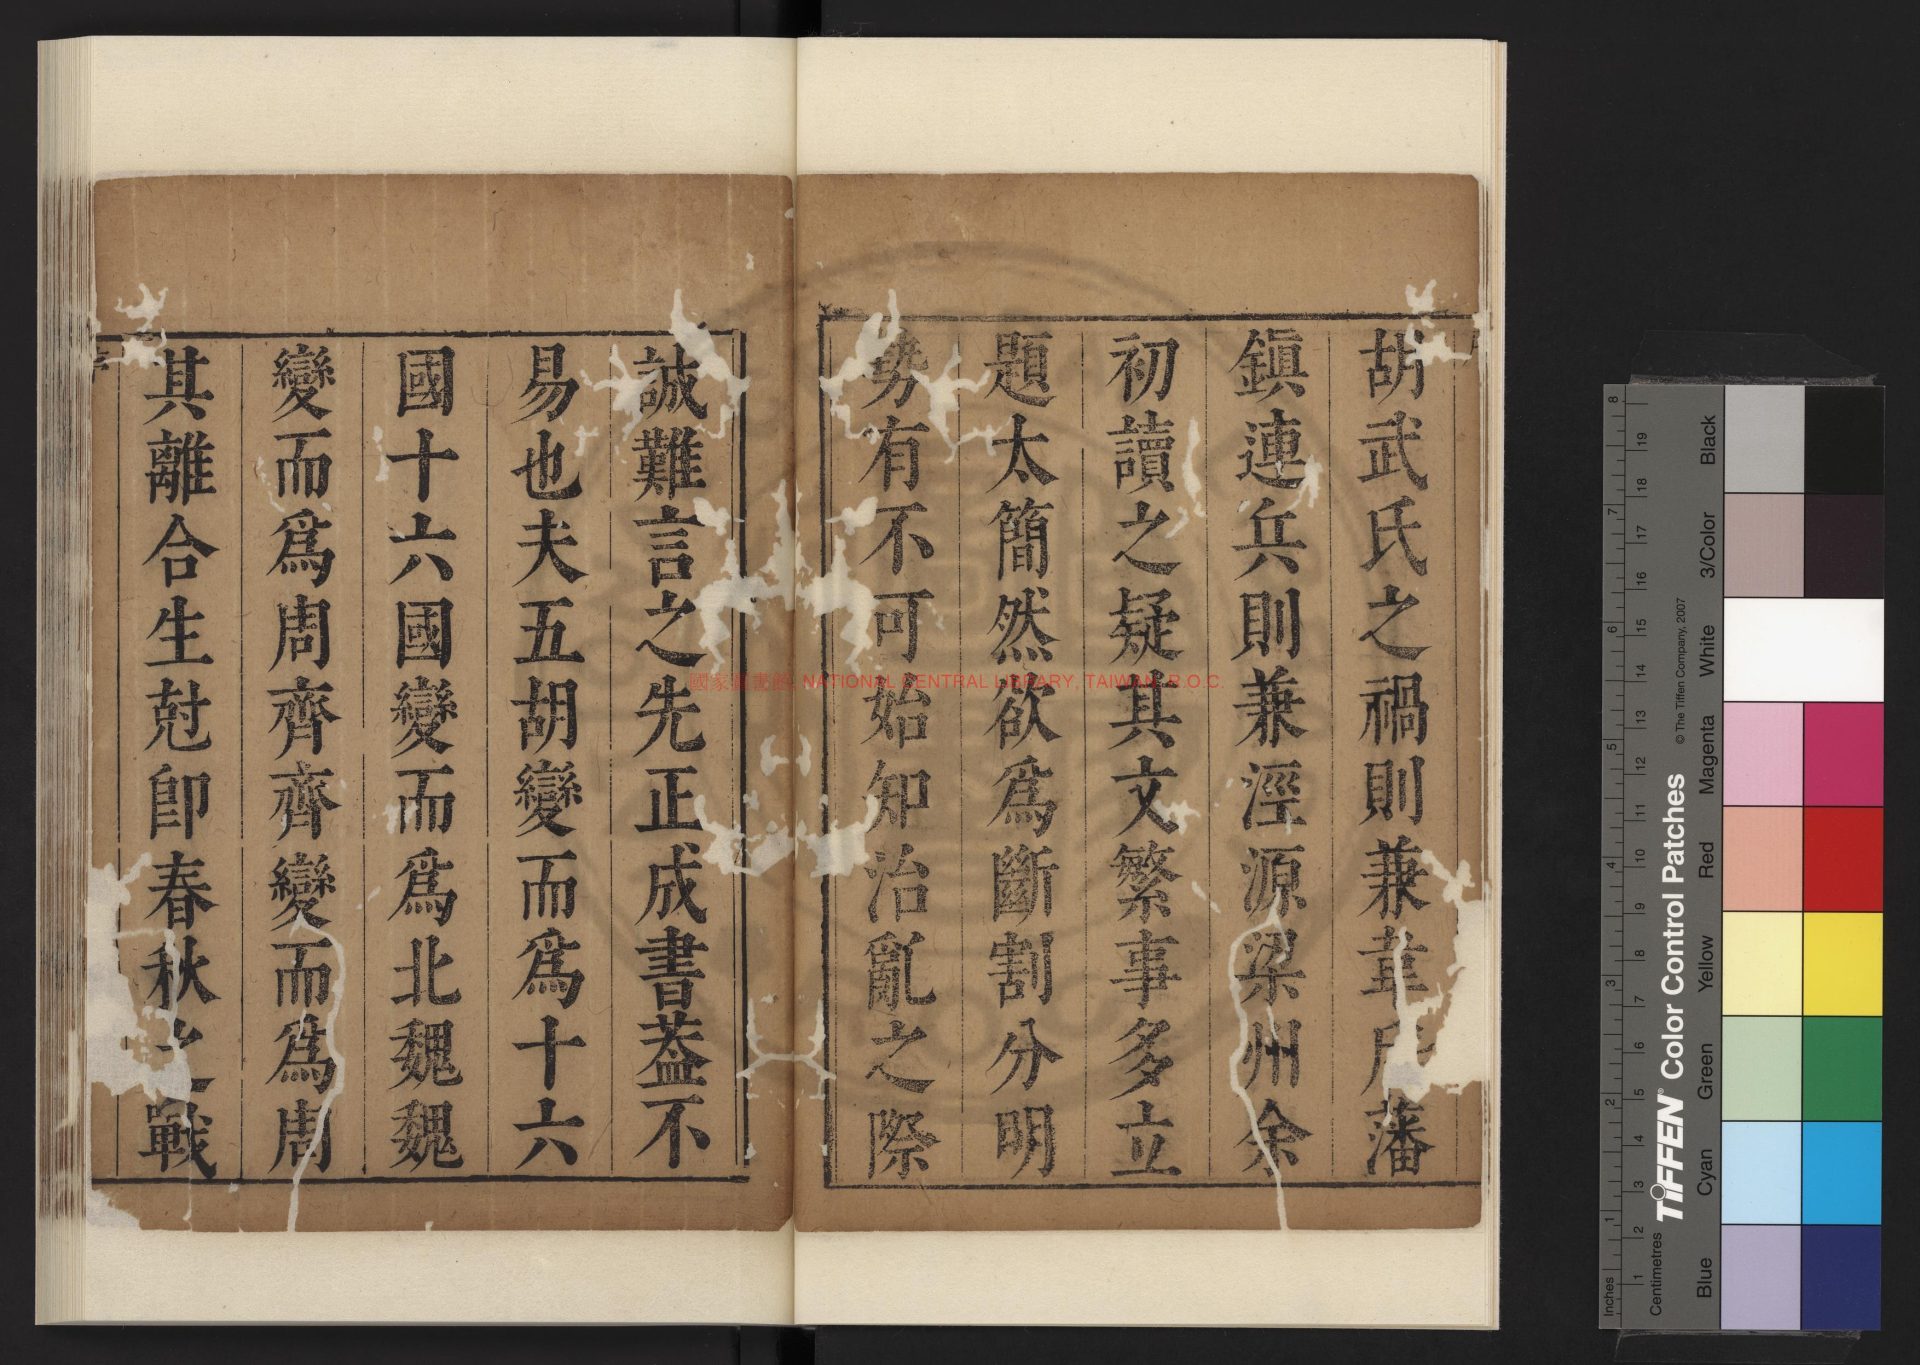 胡武氏之禍則兼韋后藩
鎮連兵則兼涇源梁州余
初讀之疑其文繁事多立
題太簡然欲爲斷割分明
勢有不可始知治亂之際
誠難言之先正成書蓋不
易也夫五胡變而爲十六
國十六國變而爲北魏魏
變而爲周齊齊變而爲周
其離合生尅卽春秋之戰
國家圖書館, NATIONAL CENTRAL LIBRARY, TAIWAN, R.O.C.
Inches
Centimetres
TIFFEN® Color Control Patches
© The Tiffen Company, 2007
Blue Cyan Green Yellow Red Magenta White 3/Color Black